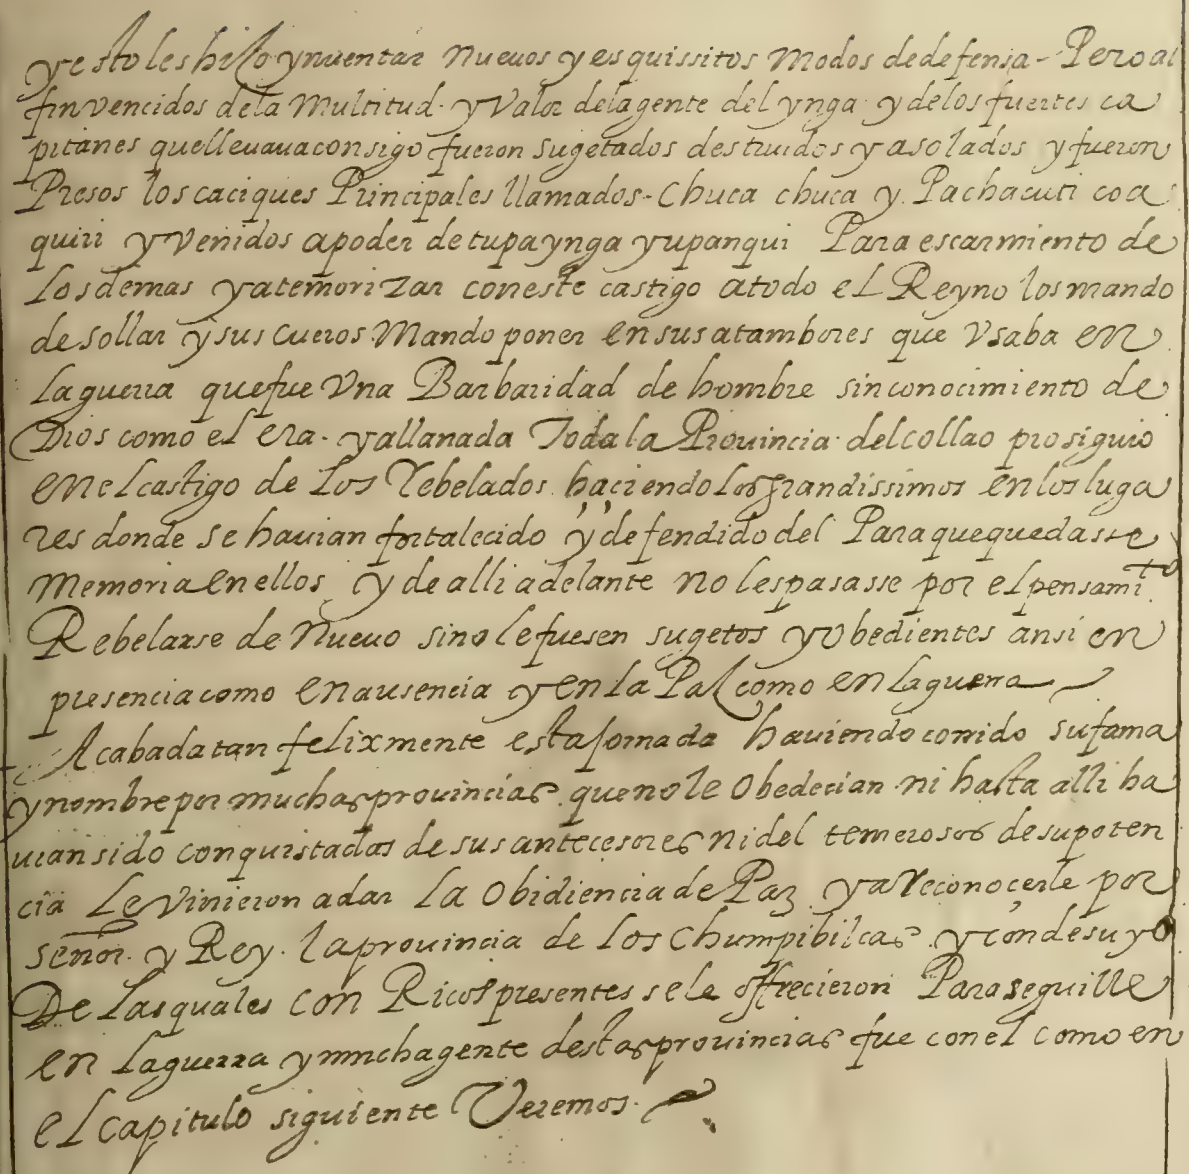 y esto les hiço ynuentar nueuos y esquissitos modos de defensa - Pero al
fin vencidos de la Multitud. y Valor de la gente del ynga y de los fuertes ca
pitanes que lleuaua consigo fueron sugetados destruidos y asolados y fueron
Presos los caciques Principales llamados - chuca chuca y Pachacuti coa
quiri y venidos a poder de tupa ynga yupanqui Para escarmiento de
los demas y atemorizar con este castigo a todo el Reyno los mando
desollar y sus cueros Mando poner en sus atambores que Vsaba en
la guerra que fue Vna Barbaridad de hombre sin conocimiento de
Dios como el era. y allanada Toda la Prouincia del collao prosiguio
en el castigo de los Rebelados haciendolos grandissimos en los luga
res donde se hauian fortalecido y defendido del Para que quedasse
Memoria en ellos y de alli adelante no les pasasse por el pensamito.
Rebelarse de nueuo sino le fuesen sugetos y obedientes ansi en
presencia como en ausencia y en la Paz como en la guerra
Acabada tan felixmente esta jornada hauiendo corrido su fama
y nombre por muchas prouincias que no le obedecian ni hasta alli ha
uian sido conquistadas de sus antecesores ni del temerosos de su poten
cia le vinieron a dar la obidiencia de Paz y a Reconoçerle por
señor. y Rey. la prouincia de los chumpibilcas y condesuyo
De las quales con Ricos presentes se le offrecieron Para seguille
en la guerra y mucha gente destas prouincias fue con el como en
el capitulo siguiente Veremos.